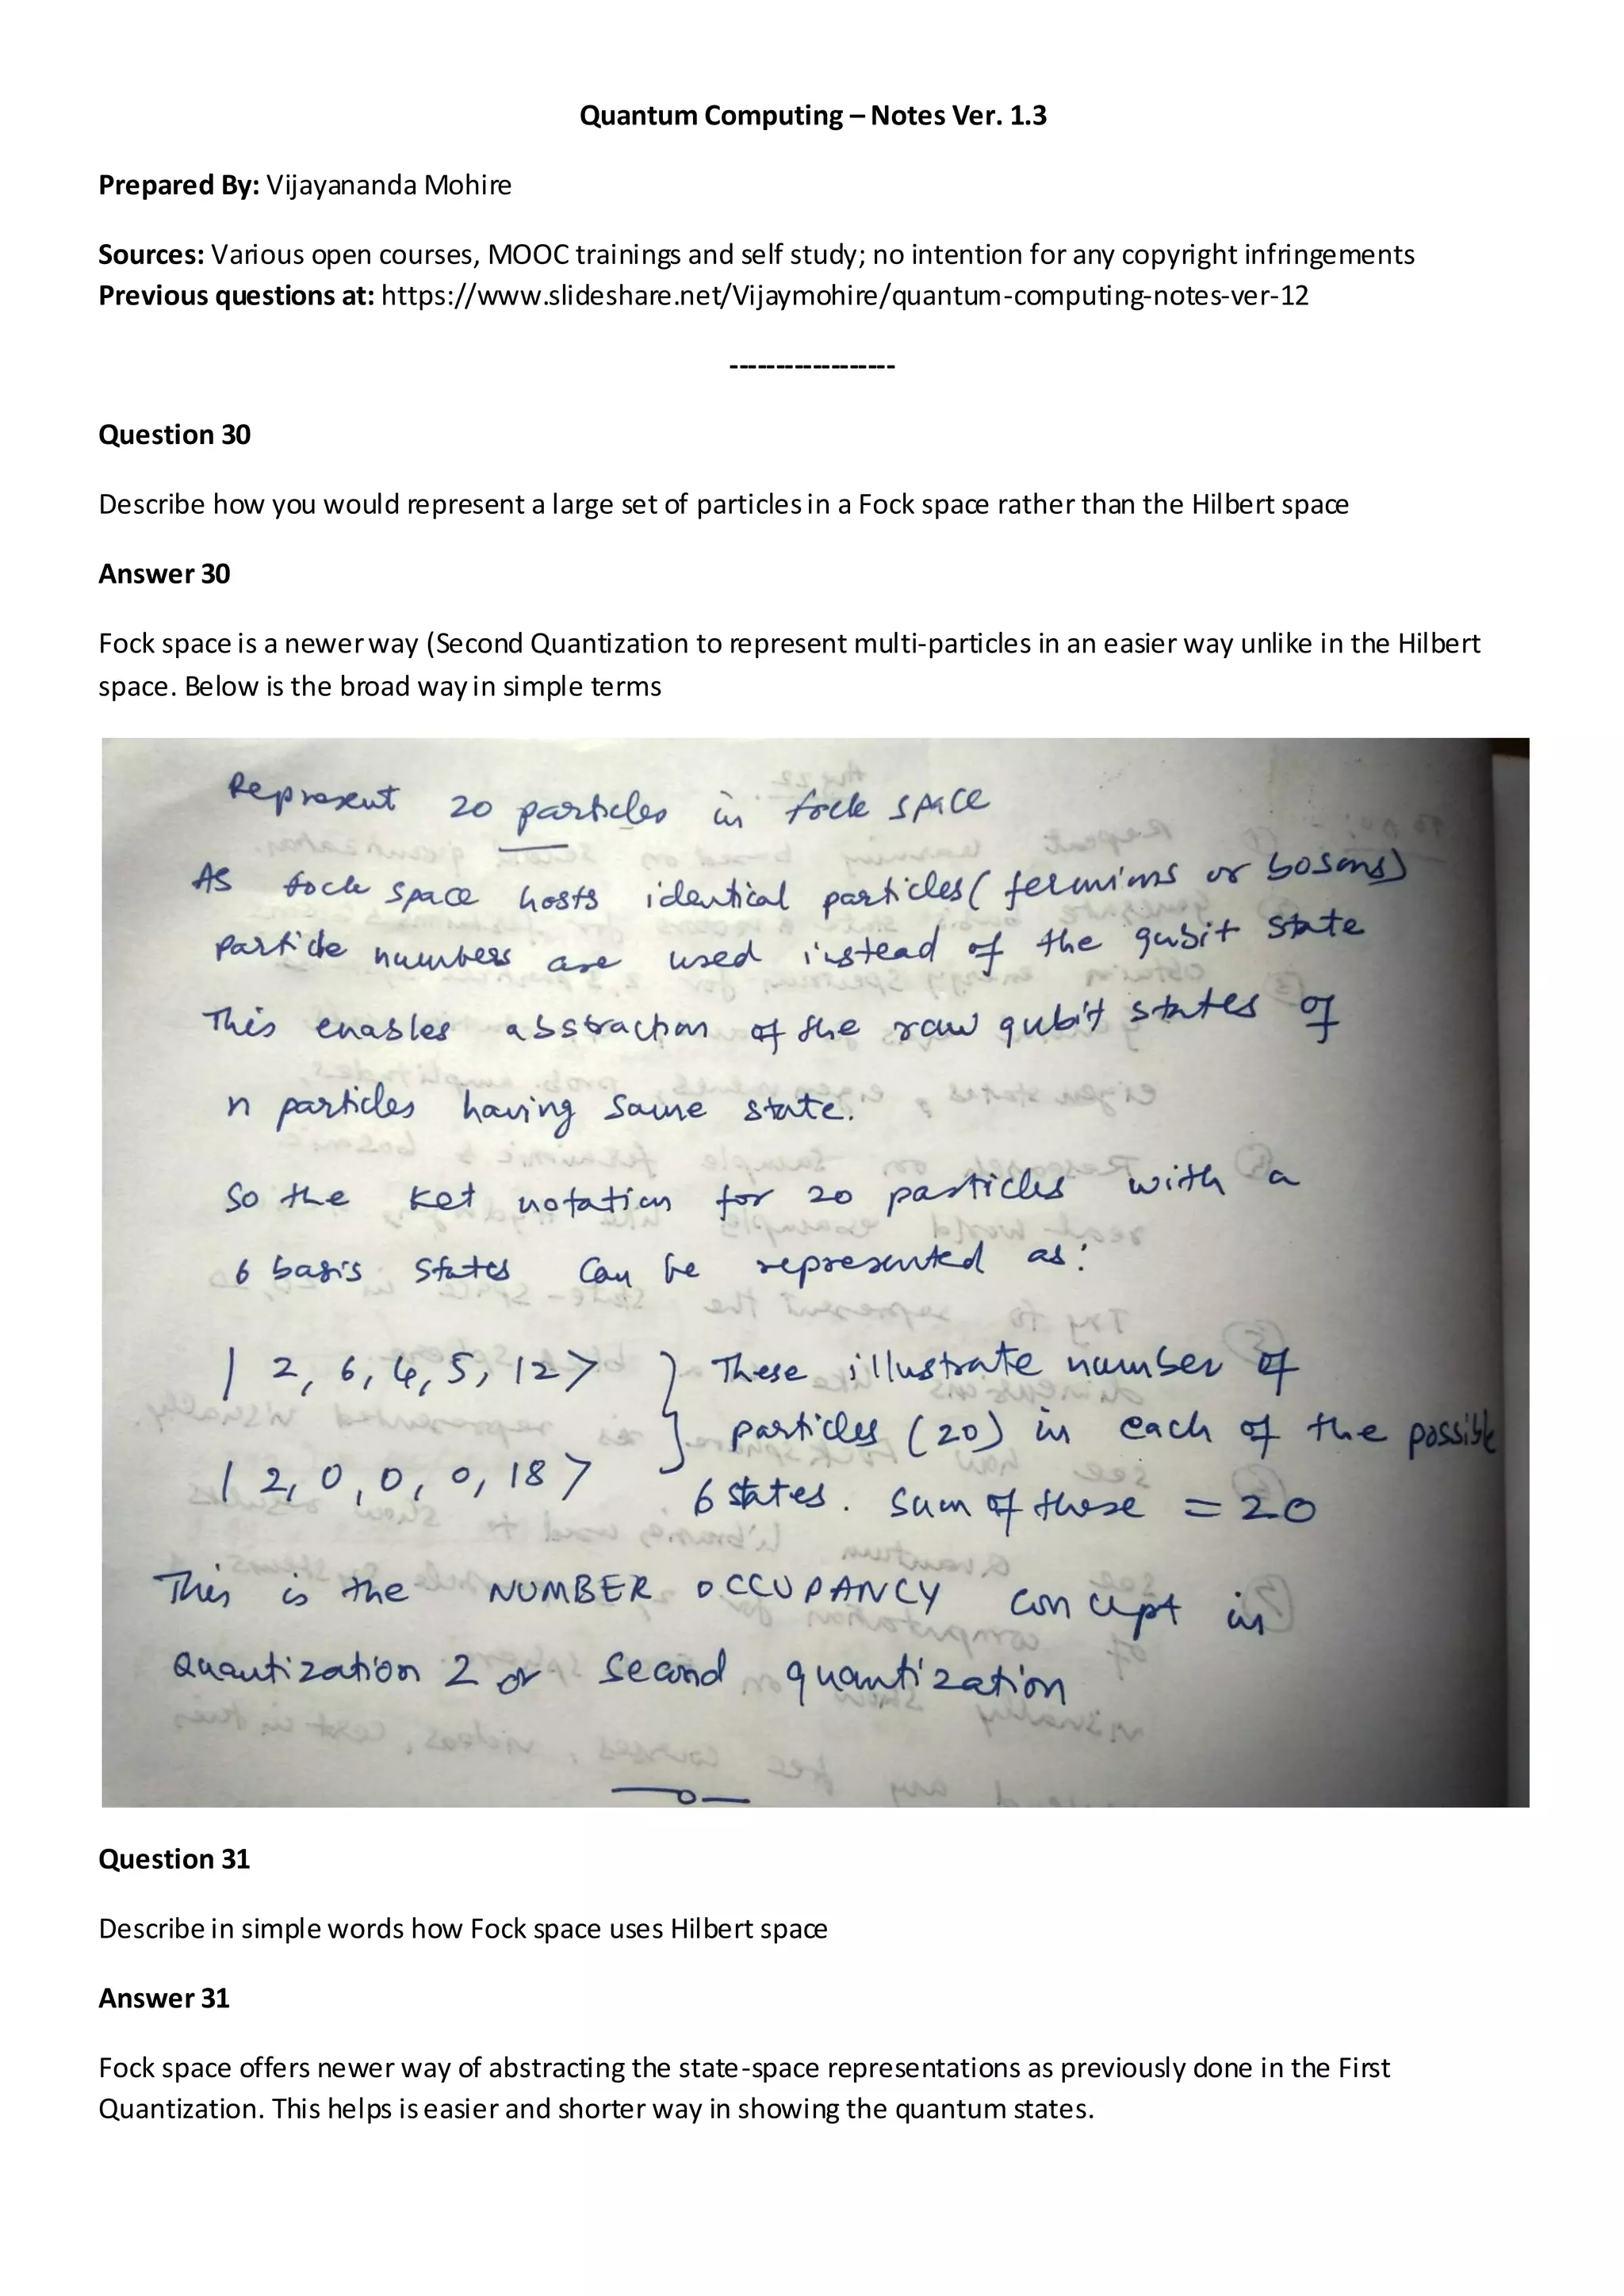 Quantum Computing – Notes Ver. 1.3
Prepared By: Vijayananda Mohire
Sources: Various open courses, MOOC trainings and self study; no intention for any copyright infringements
Previous questions at: https://www.slideshare.net/Vijaymohire/quantum-computing-notes-ver-12
------------------
Question 30
Describe how you would represent a large set of particles in a Fock space rather than the Hilbert space
Answer 30
Fock space is a newer way (Second Quantization to represent multi-particles in an easier way unlike in the Hilbert
space. Below is the broad way in simple terms
Represent 20 particles in fock space
As fock space hosts identical particles (fermions or bosons)
particle numbers are used instead of the qubit state
This enables abstraction of the raw qubit states of
n particles having same state.
So the ket notation for 20 particles with a
6 basis states can be represented as:
| 2, 6, 4, 5, 12 > } These illustrate number of
particles (20) in each of the possible
| 2, 0, 0, 0, 18 >
6 states. Sum of these = 20
This is the NUMBER OCCUPANCY concept in
Quantization 2 or second quantization
Question 31
Describe in simple words how Fock space uses Hilbert space
Answer 31
Fock space offers newer way of abstracting the state-space representations as previously done in the First
Quantization. This helps is easier and shorter way in showing the quantum states.